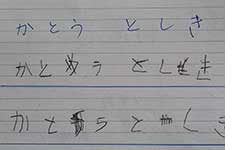 かとう としき
かとう としき
かとう としき